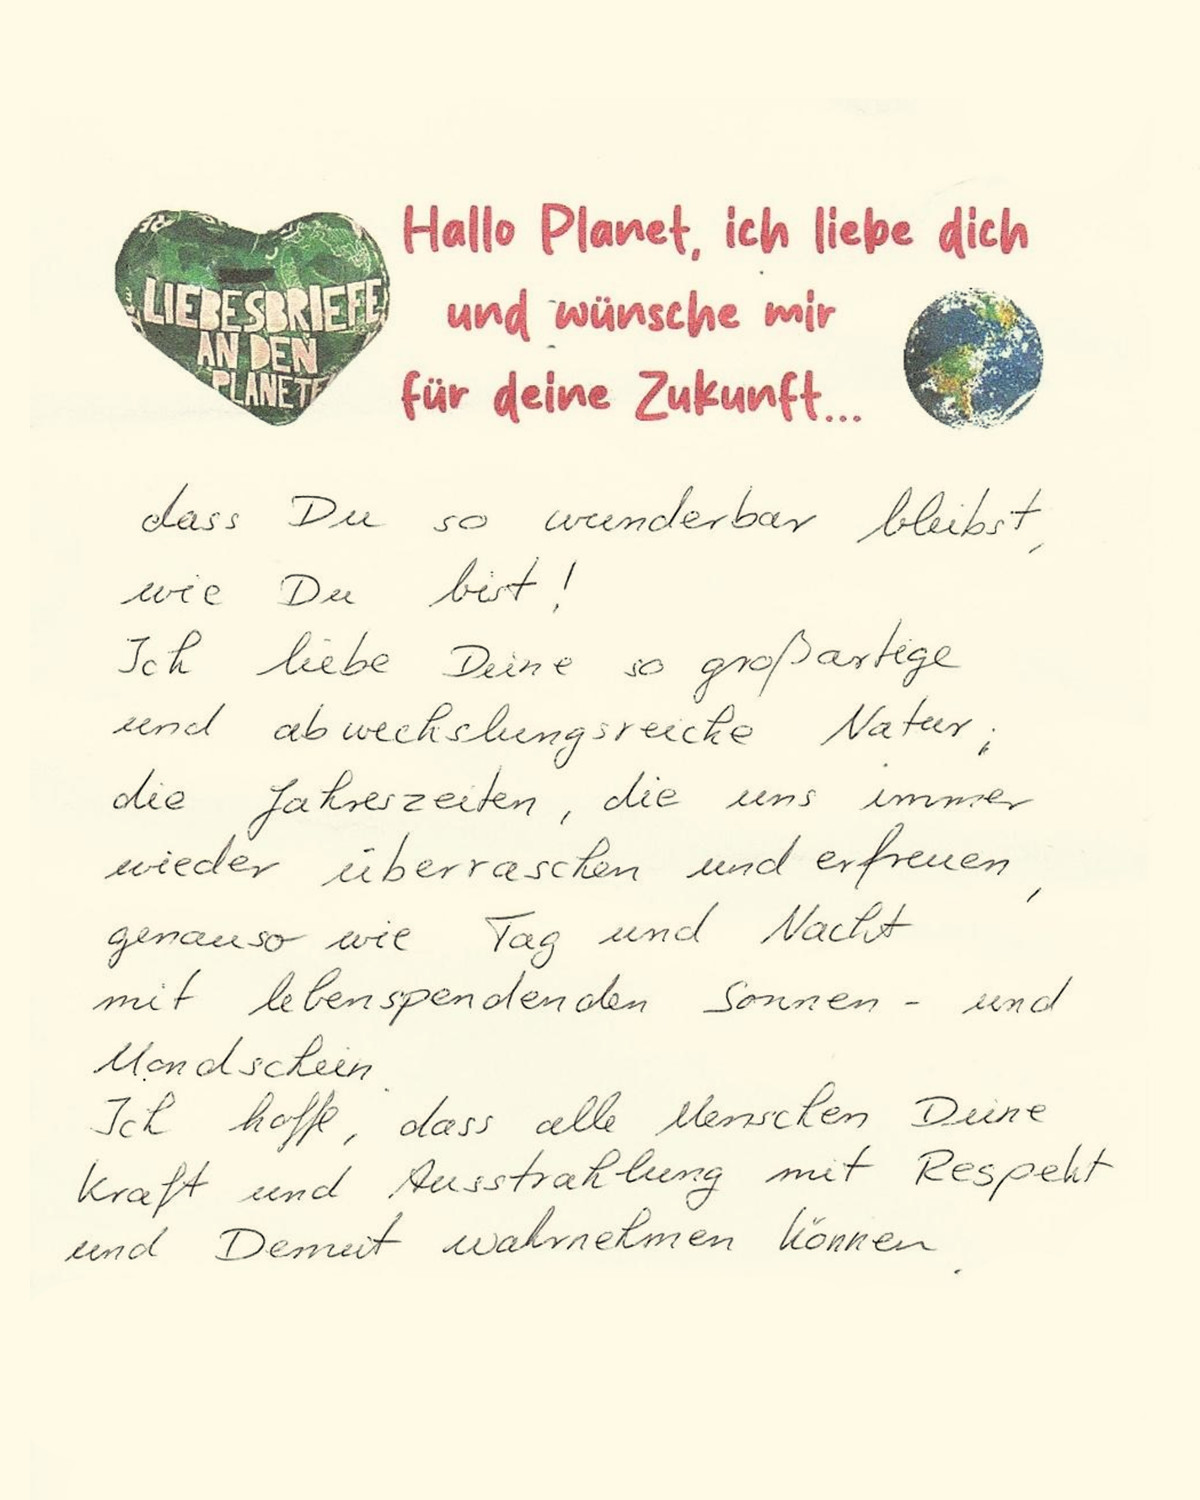 LIEBESBRIEFE
AN DEN
PLANETE
Hallo Planet, ich liebe dich
und wünsche mir
für deine Zukunft...
dass Du so wunderbar bleibst,
wie Du bist!
Ich liebe Deine so großartige
und abwechslungsreiche Natur;
die Jahreszeiten, die uns immer
wieder überraschen und erfreuen,
genauso wie Tag und Nacht
mit lebenspendenden Sonnen- und
Mondschein.
Ich hoffe, dass alle Menschen Deine
Kraft und Ausstrahlung mit Respekt
und Demut wahrnehmen können.